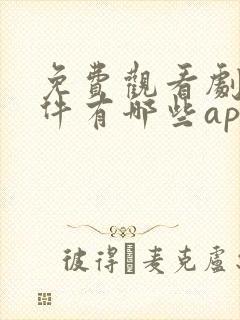 免費觀看劇
件有哪些ap
HANDSOME
彼得 麥克盧